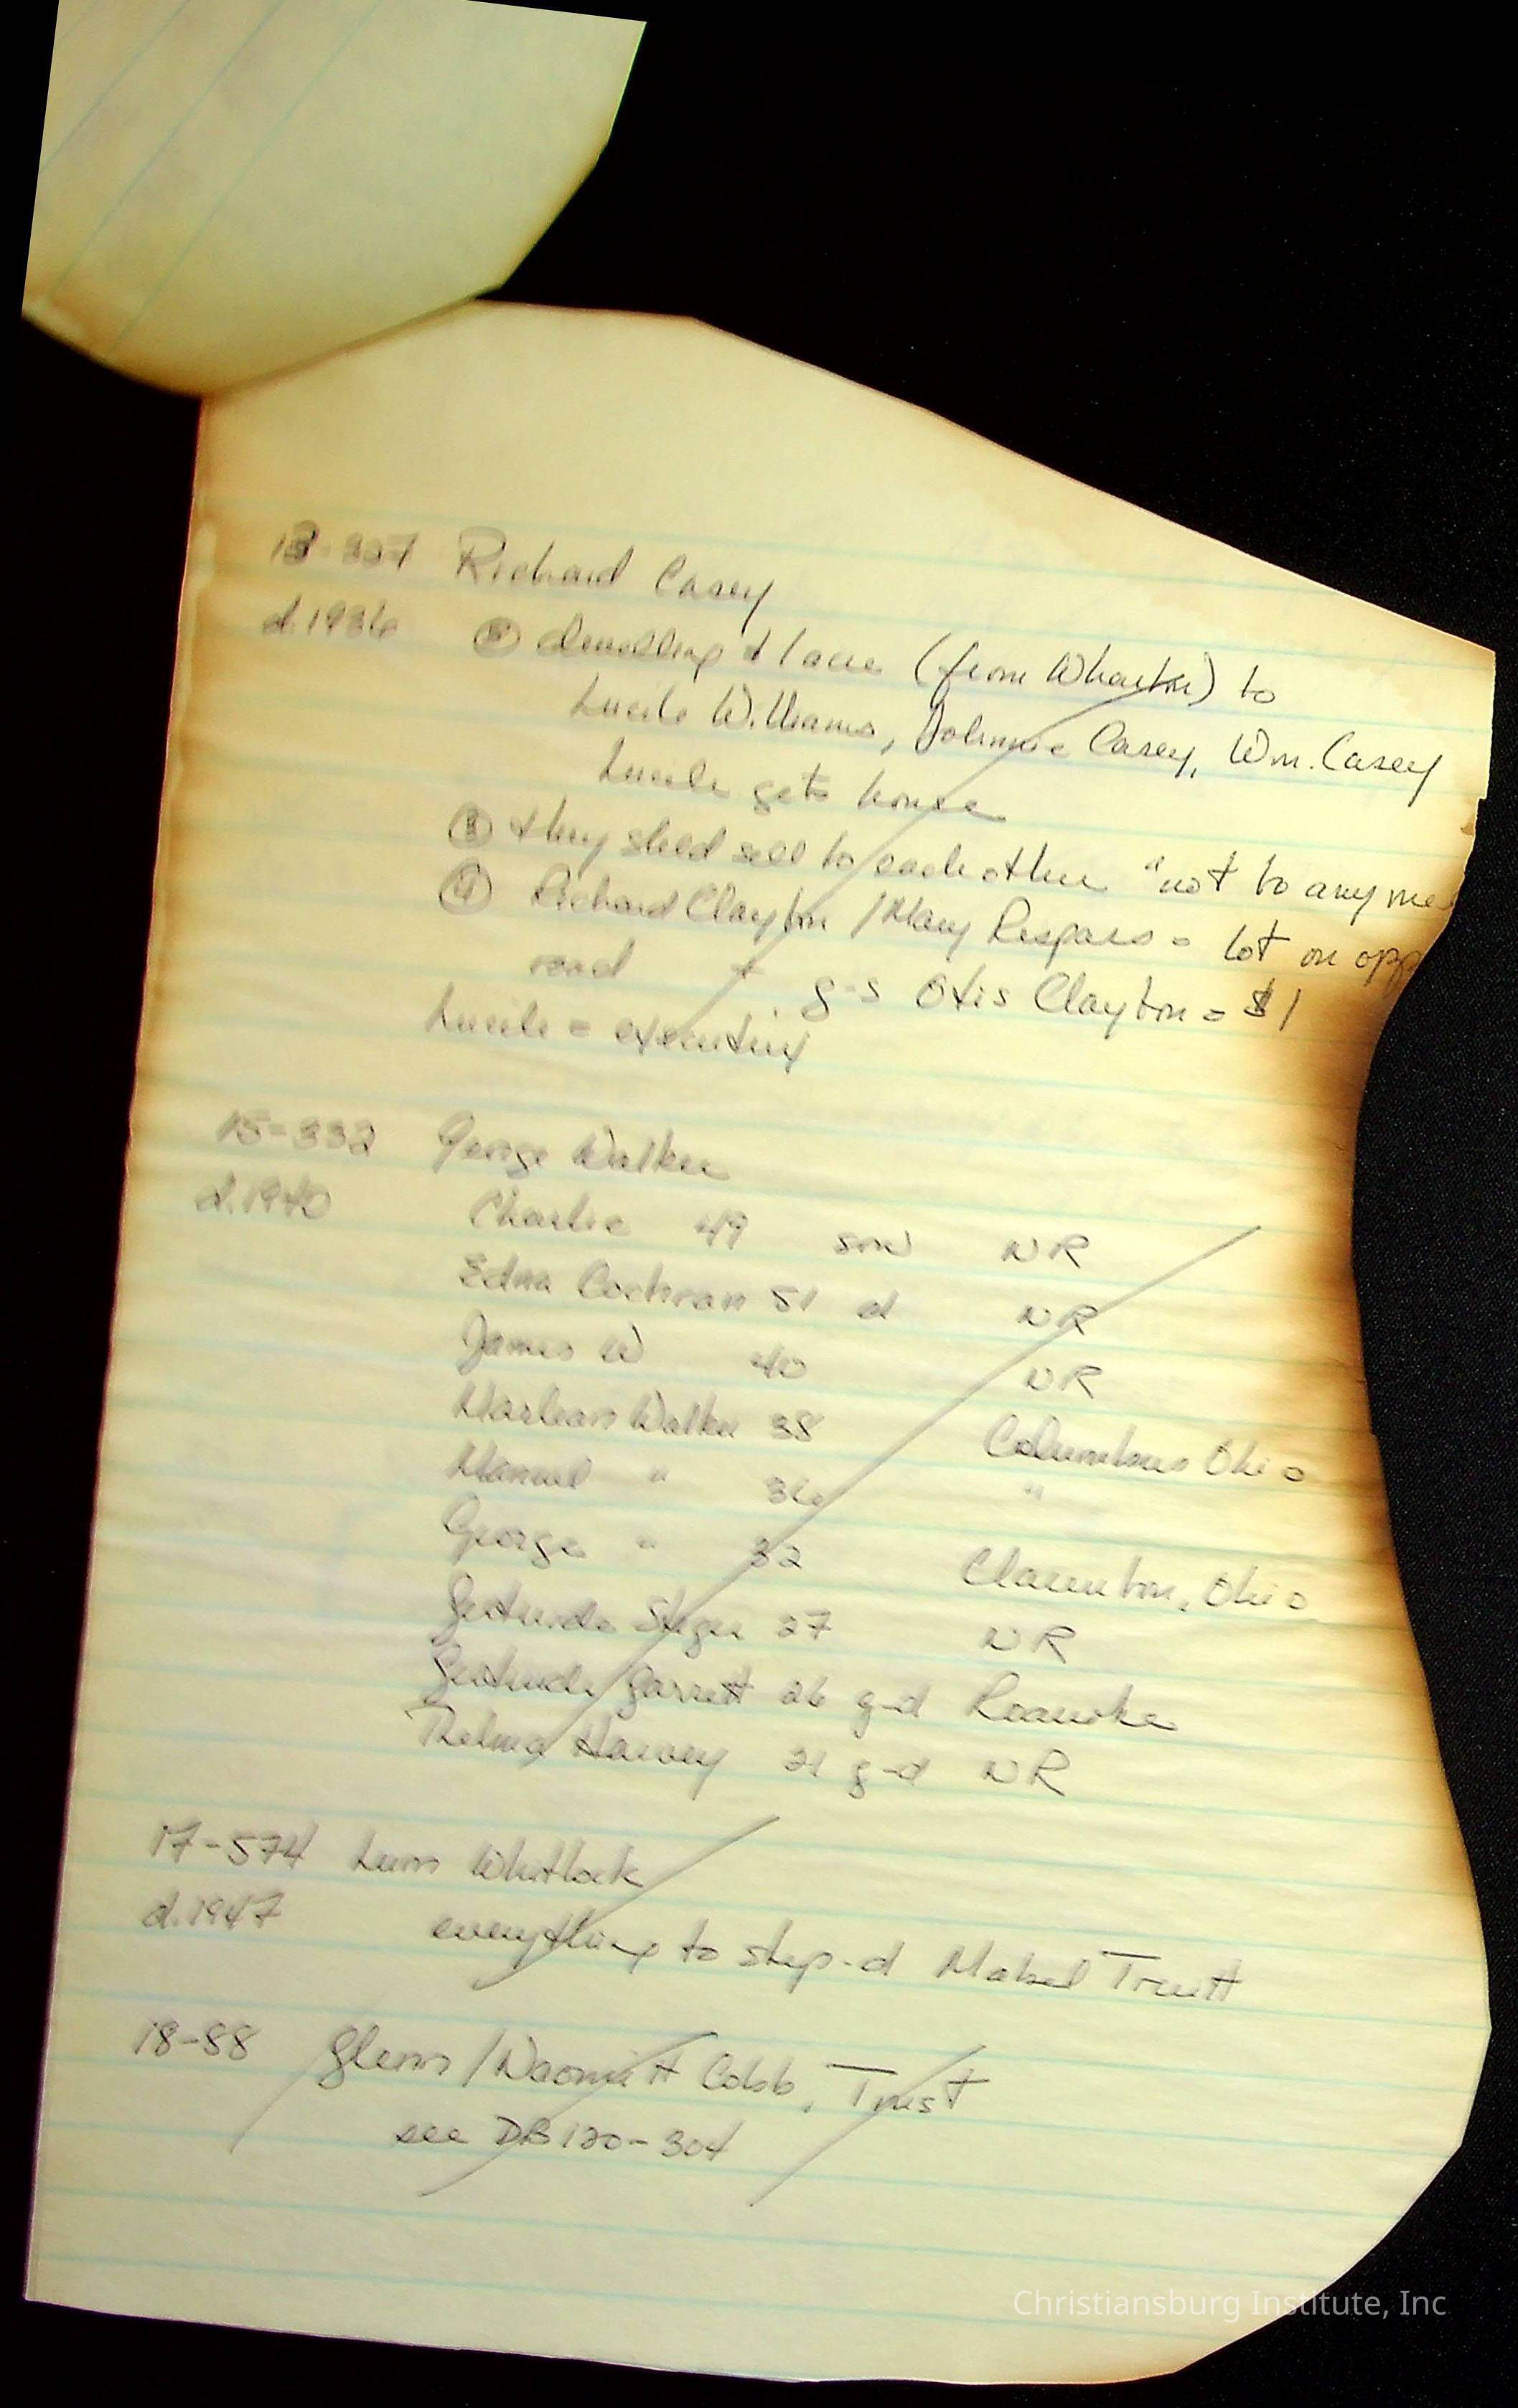 13-337 Richard Casey
d.1936 ② dwelling + 1 acre (from Wharton) to
Lucile Williams, Johnnie Casey, Wm. Casey
Lucile gets house
③ they shld sell to each other "not to any
④ Richard Clayton / Mary Respass = lot on opp
road + g-s Otis Clayton = $1
Lucile = executrix
15-332 George Walker
d.1940 Charlie 49 son NR
Edna Cochran 51 d NR
James W 40 NR
Walker 38 Columbus Ohio
Manuel " 36 "
George " 32 Ohio
Gertrude Steger 27 NR
Gertrude Garrett 26 g-d Roanoke
Thelma Harvey 21 g-d NR
17-574 Whitlock
d.1947 everything to step-d Mabel Truitt
18-88 Glenn / Cobb, Trust
see DB 120-304
Christiansburg Institute, Inc